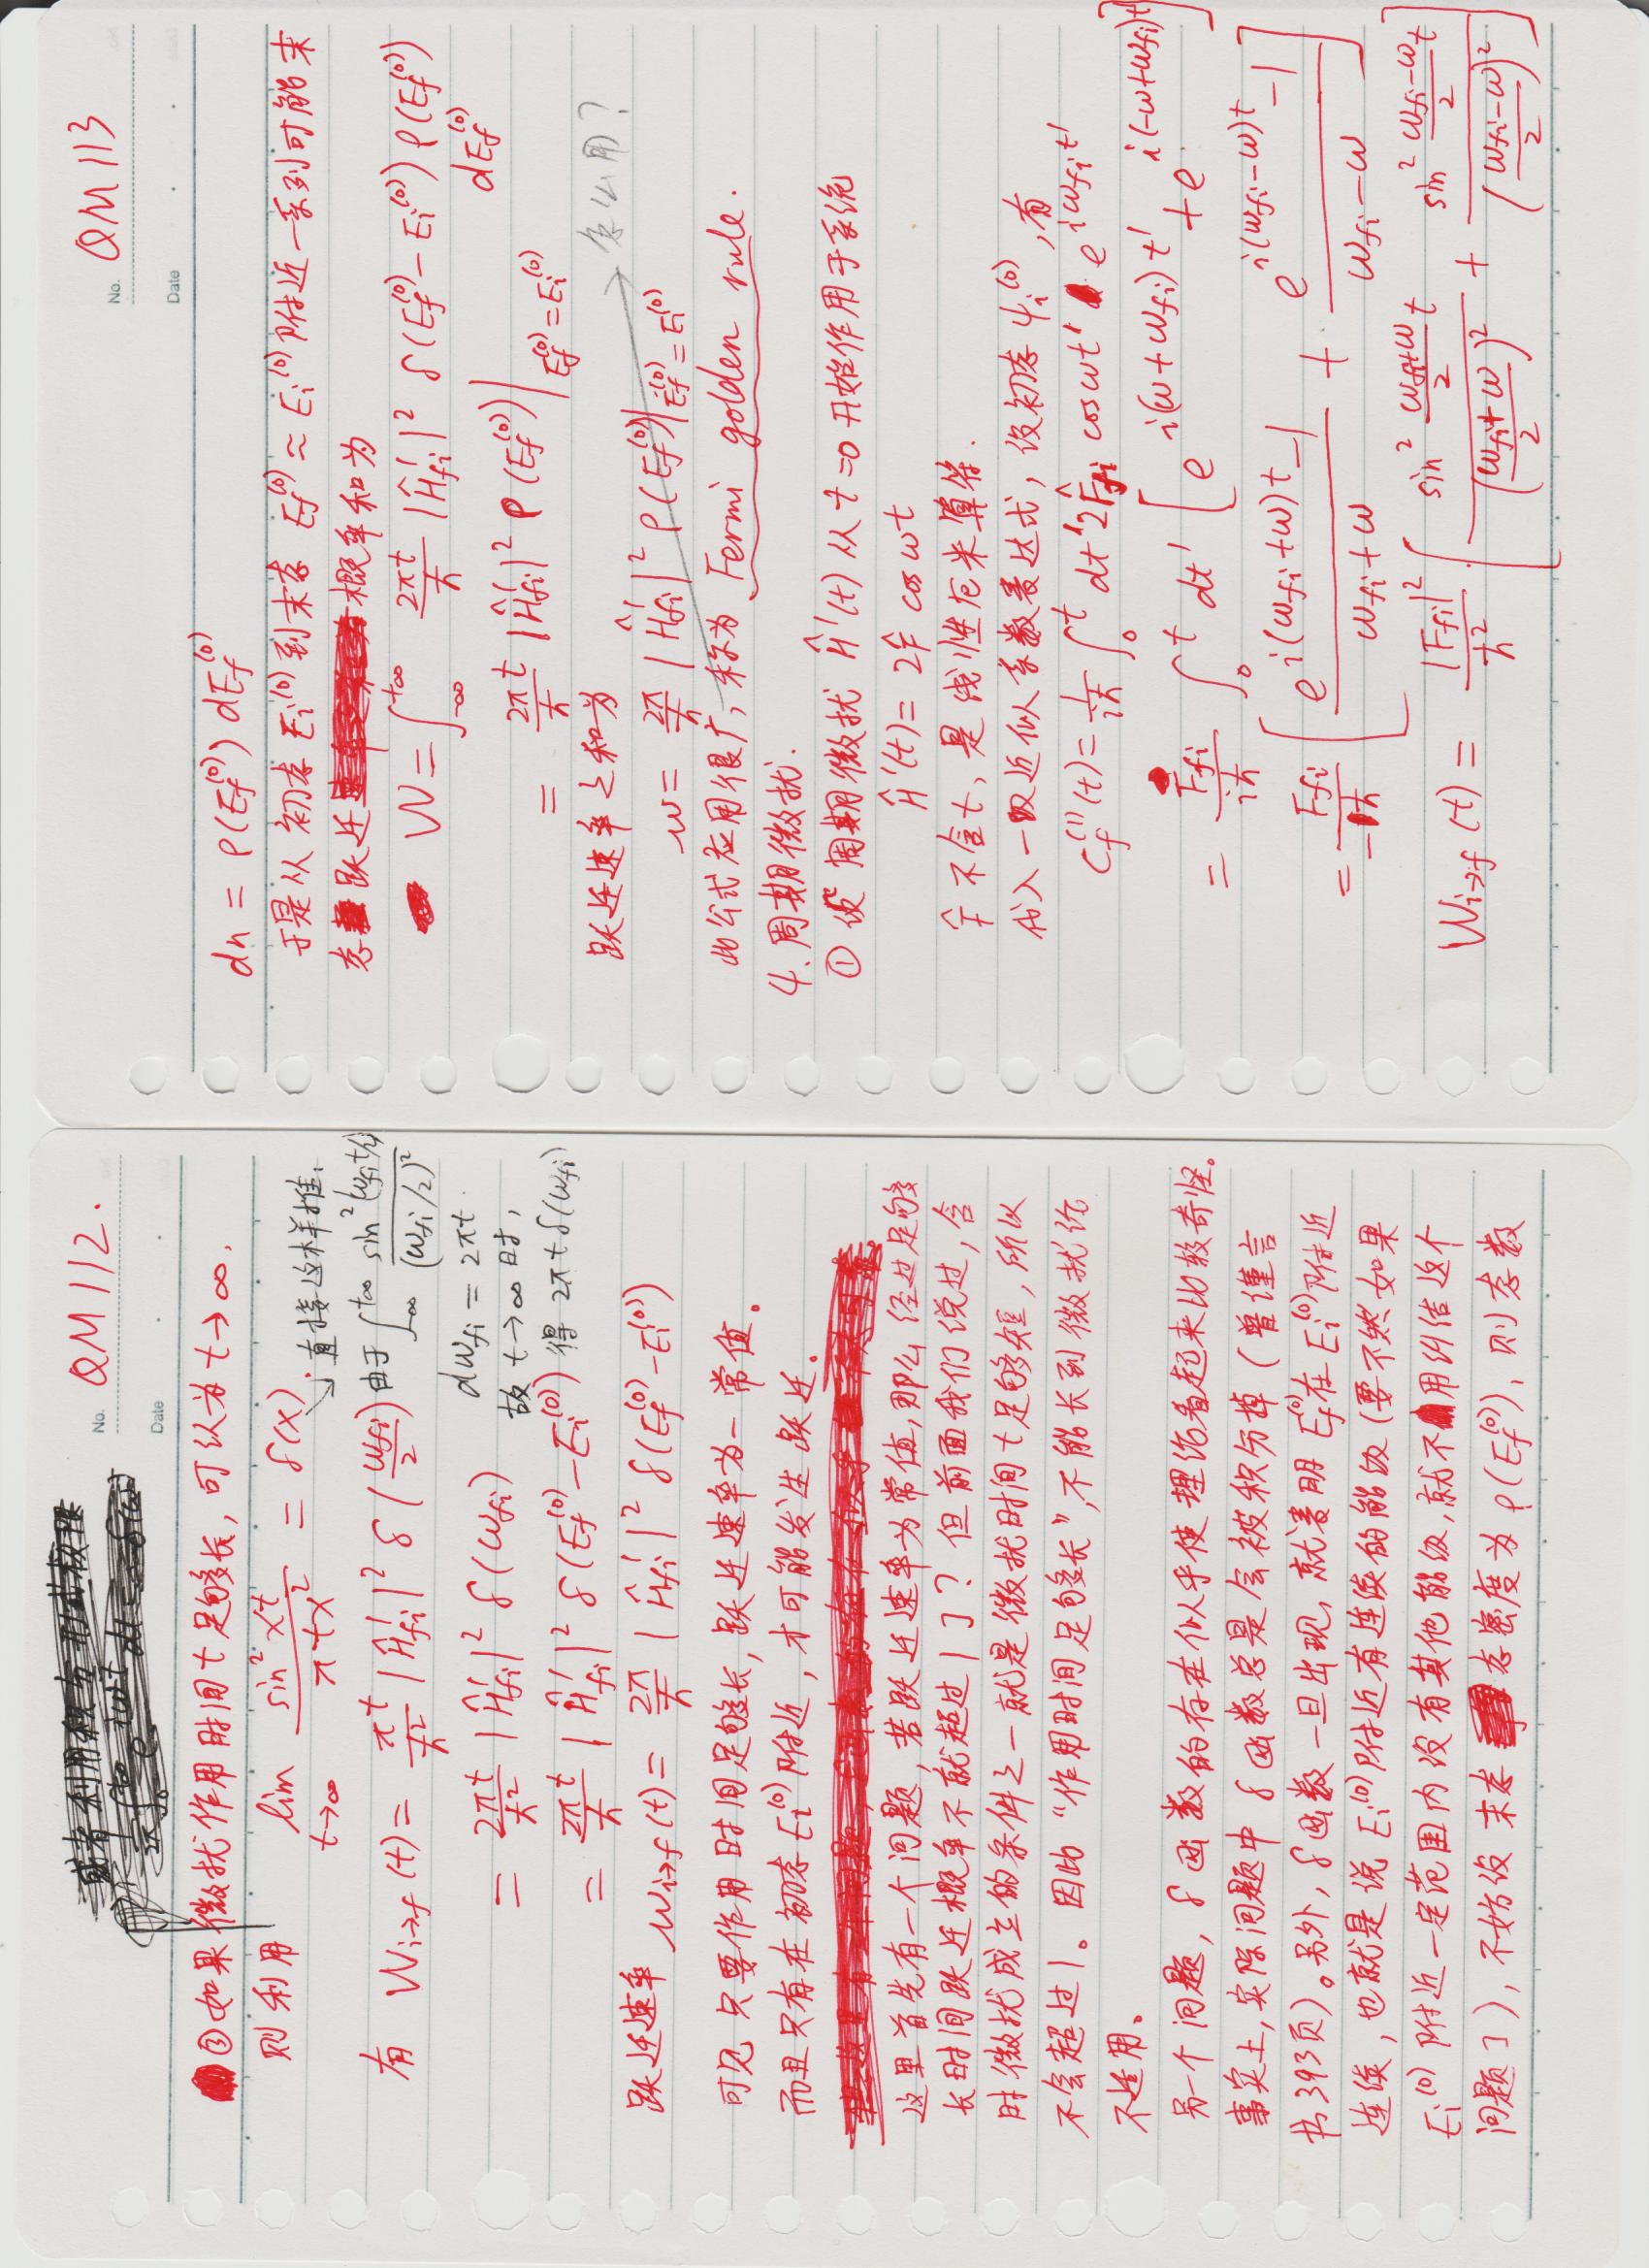 或者利用积分形式极限
QM 112.
No.
Date
③如果微扰作用时间t足够长, 可认为 t→∞.
则利用 lim_{t→∞} sin²xt / πtx² = δ(x).
直接这样推.
有 W_{i→f}(t) = πt/ħ² |Ĥ'_{fi}|² δ(ω_{fi}/2)
由于 ∫_{-∞}^{+∞} sin²(ω_{fi}t/2) / (ω_{fi}/2)²
dω_{fi} = 2πt.
= 2πt/ħ² |Ĥ'_{fi}|² δ(ω_{fi})
故 t→∞ 时,
= 2πt/ħ |Ĥ'_{fi}|² δ(E_f^{(0)} - E_i^{(0)})
得 2πtδ(ω_{fi})
跃迁速率 w_{i→f}(t) = 2π/ħ |Ĥ'_{fi}|² δ(E_f^{(0)} - E_i^{(0)})
可见只要作用时间足够长, 跃迁速率为一常值。
而且只有在初态 E_i^{(0)} 附近, 才可能发生跃迁。
这里首先有一个问题, 若跃迁速率为常值, 那么经过足够
长时间跃迁概率不就超过1了? 但前面我们说过, 含
时微扰成立的条件之一就是微扰时间t足够短, 所以
不会超过1。因此“作用时间足够长”, 不能长到微扰论
不适用。
另一个问题, δ函数的存在似乎使理论看起来比较奇怪。
事实上, 实际问题中δ函数总是会被积分掉 (曾谨言
书393页)。另外, δ函数一旦出现, 就表明 E_f^{(0)} 在 E_i^{(0)} 附近
连续, 也就是说 E_i^{(0)} 附近有连续的能级 (要不然如果
E_i^{(0)} 附近一定范围内没有其他能级, 就不用纠结这个
问题了), 不妨设末态态密度为 ρ(E_f^{(0)}), 则态数
No. QM 113
Date
dn = ρ(E_f^{(0)}) dE_f^{(0)}
于是从初态 E_i^{(0)} 到末态 E_f^{(0)} ≈ E_i^{(0)} 附近一系列可能末
态跃迁概率和为
W = ∫_{-∞}^{+∞} 2πt/ħ |Ĥ'_{fi}|² δ(E_f^{(0)} - E_i^{(0)}) ρ(E_f^{(0)})
dE_f^{(0)}
= 2πt/ħ |Ĥ'_{fi}|² ρ(E_f^{(0)})|_{E_f^{(0)} = E_i^{(0)}}
跃迁速率之和为
怎么用?
w = 2π/ħ |Ĥ'_{fi}|² ρ(E_f^{(0)})|_{E_f^{(0)} = E_i^{(0)}}
此公式应用很广, 称为 Fermi golden rule.
4. 周期微扰.
① 设周期微扰 Ĥ'(t) 从 t=0 开始作用于系统
Ĥ'(t) = 2F̂ cosωt
F̂ 不含t, 是线性厄米算符.
代入一级近似系数表达式, 设初态 ψ_i^{(0)}, 有
C_f^{(1)}(t) = 1/iħ ∫_0^t dt' 2F̂_{fi} cosωt' e^{iω_{fi}t'}
= F_{fi}/iħ ∫_0^t dt' [e^{i(ω+ω_{fi})t'} + e^{i(-ω+ω_{fi})t'}]
= F_{fi}/-ħ [(e^{i(ω_{fi}+ω)t} - 1)/(ω_{fi}+ω) + (e^{i(ω_{fi}-ω)t} - 1)/(ω_{fi}-ω)]
W_{i→f}(t) = |F_{fi}|²/ħ² · [sin² (ω_{fi}+ω)/2 t / ((ω_{fi}+ω)/2)² + sin² (ω_{fi}-ω)/2 t / ((ω_{fi}-ω)/2)²]